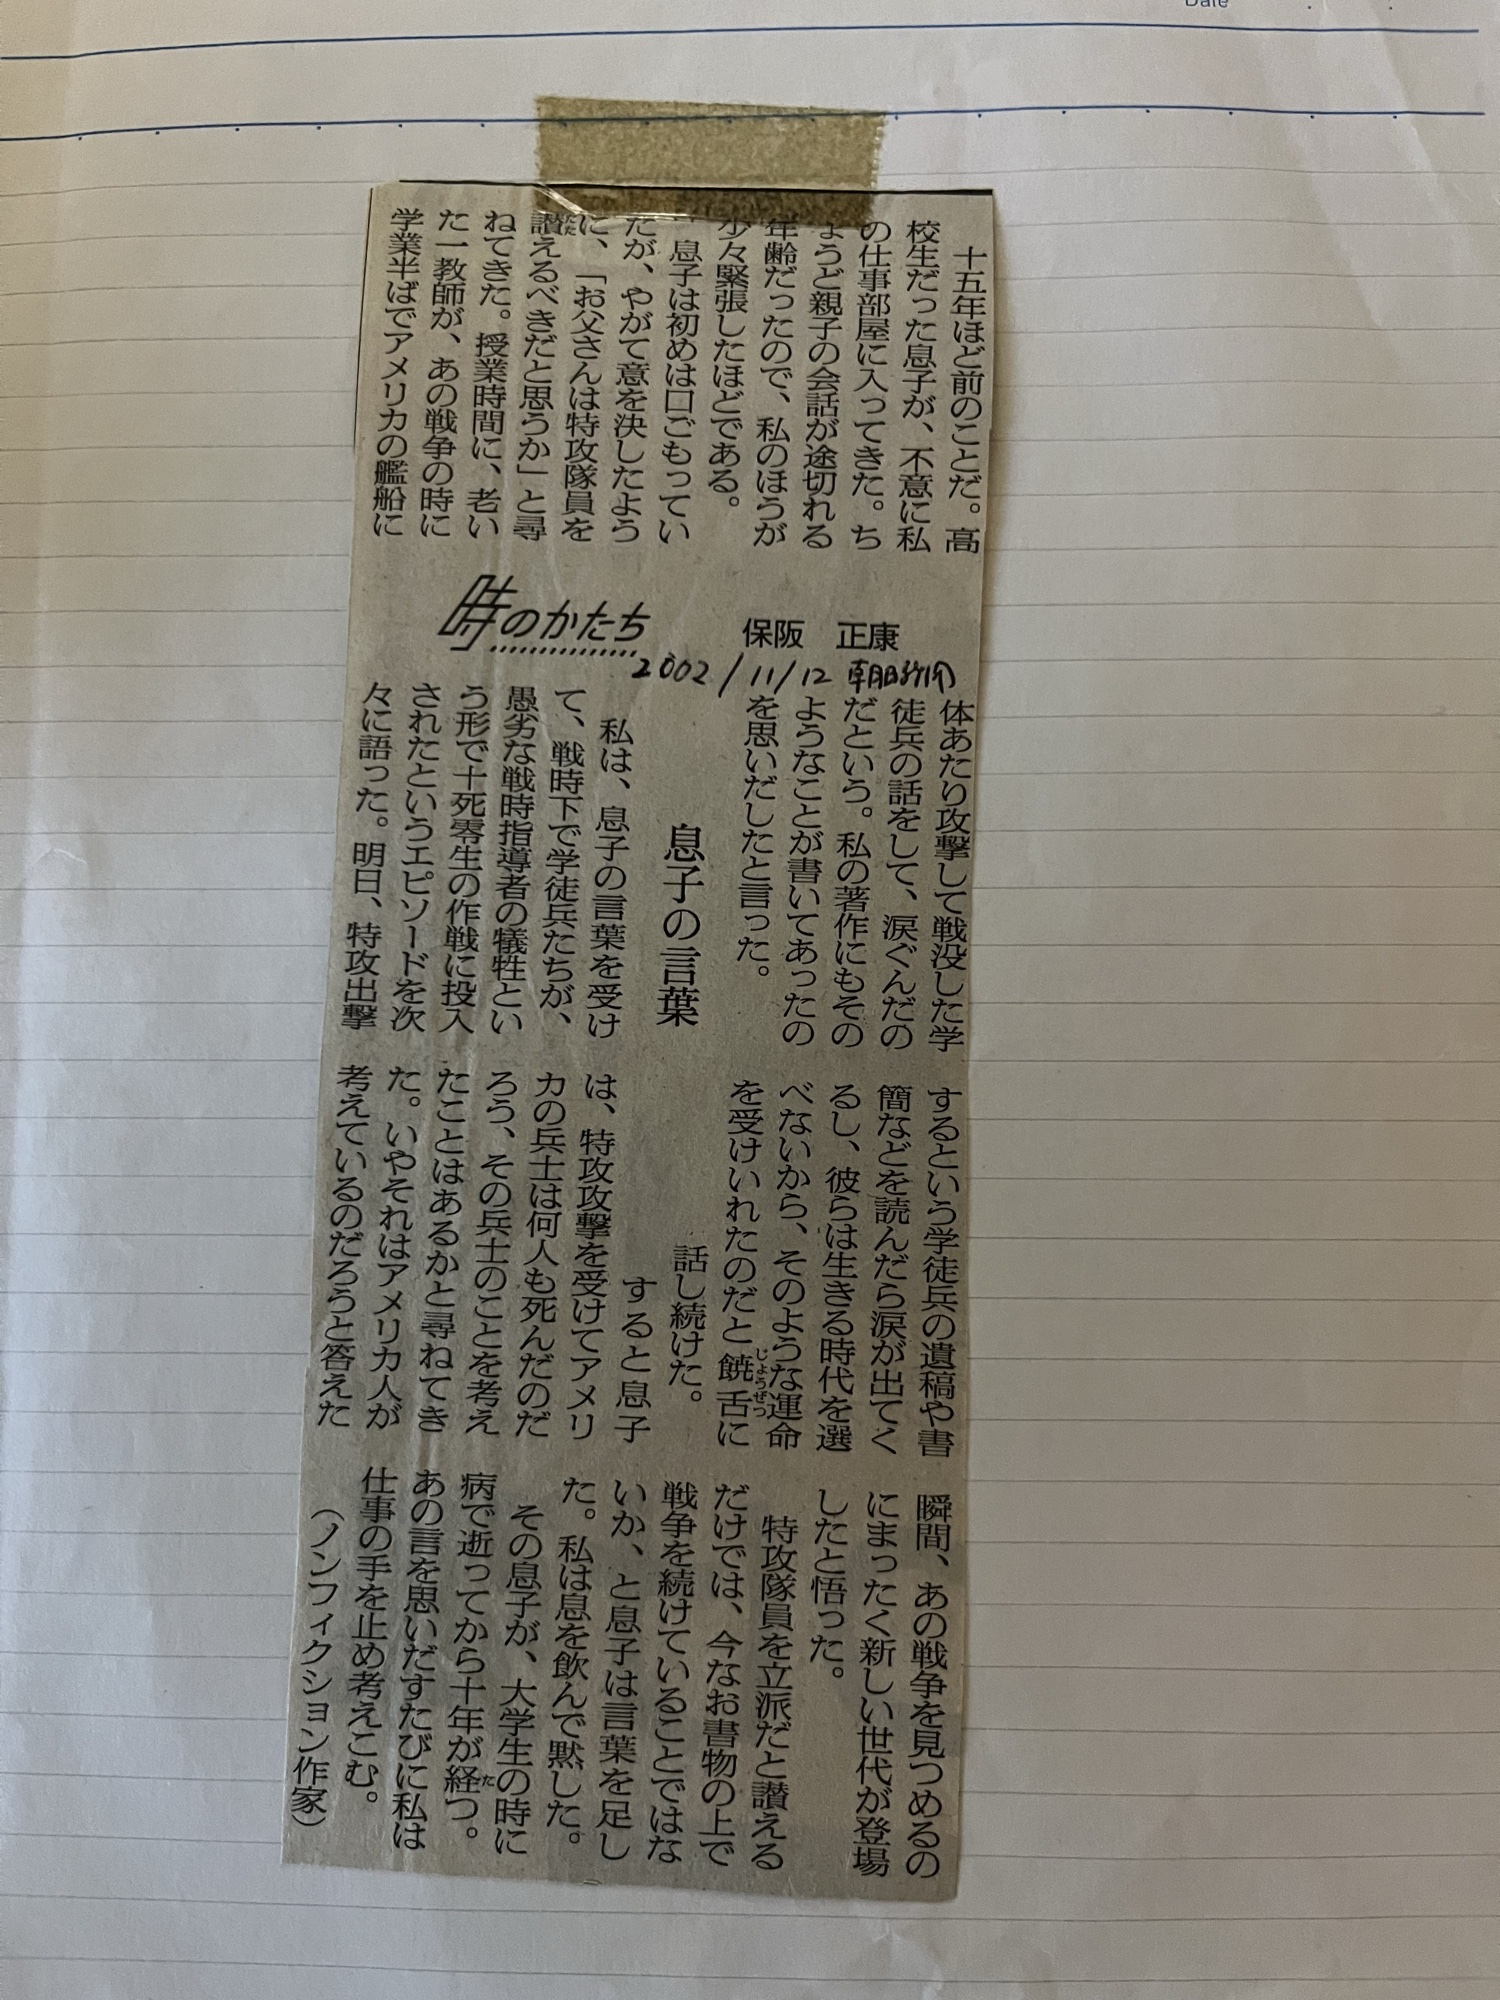 Date
時のかたち
保阪 正康
2002/11/12 朝日新聞
息子の言葉
十五年ほど前のことだ。高
校生だった息子が、不意に私
の仕事部屋に入ってきた。ち
ょうど親子の会話が途切れる
年齢だったので、私のほうが
少々緊張したほどである。
息子は初めは口ごもってい
たが、やがて意を決したよう
に、「お父さんは特攻隊員を
讃えるべきだと思うか」と尋
ねてきた。授業時間に、老い
た一教師が、あの戦争の時に
学業半ばでアメリカの艦船に
体あたり攻撃して戦没した学
徒兵の話をして、涙ぐんだの
だという。私の著作にもその
ようなことが書いてあったの
を思いだしたと言った。
私は、息子の言葉を受け
て、戦時下で学徒兵たちが、
愚劣な戦時指導者の犠牲とい
う形で十死零生の作戦に投入
されたというエピソードを次
々に語った。明日、特攻出撃
するという学徒兵の遺稿や書
簡などを読んだら涙が出てく
るし、彼らは生きる時代を選
べないから、そのような運命
を受けいれたのだと饒舌に
じょうぜつ
話し続けた。
すると息子
は、特攻攻撃を受けてアメリ
カの兵士は何人も死んだのだ
ろう、その兵士のことを考え
たことはあるかと尋ねてき
た。いやそれはアメリカ人が
考えているのだろうと答えた
瞬間、あの戦争を見つめるの
にまったく新しい世代が登場
したと悟った。
特攻隊員を立派だと讃える
だけでは、今なお書物の上で
戦争を続けていることではな
いか、と息子は言葉を足し
た。私は息を飲んで黙した。
その息子が、大学生の時に
病で逝ってから十年が経つ。
た
あの言を思いだすたびに私は
仕事の手を止め考えこむ。
（ノンフィクション作家）